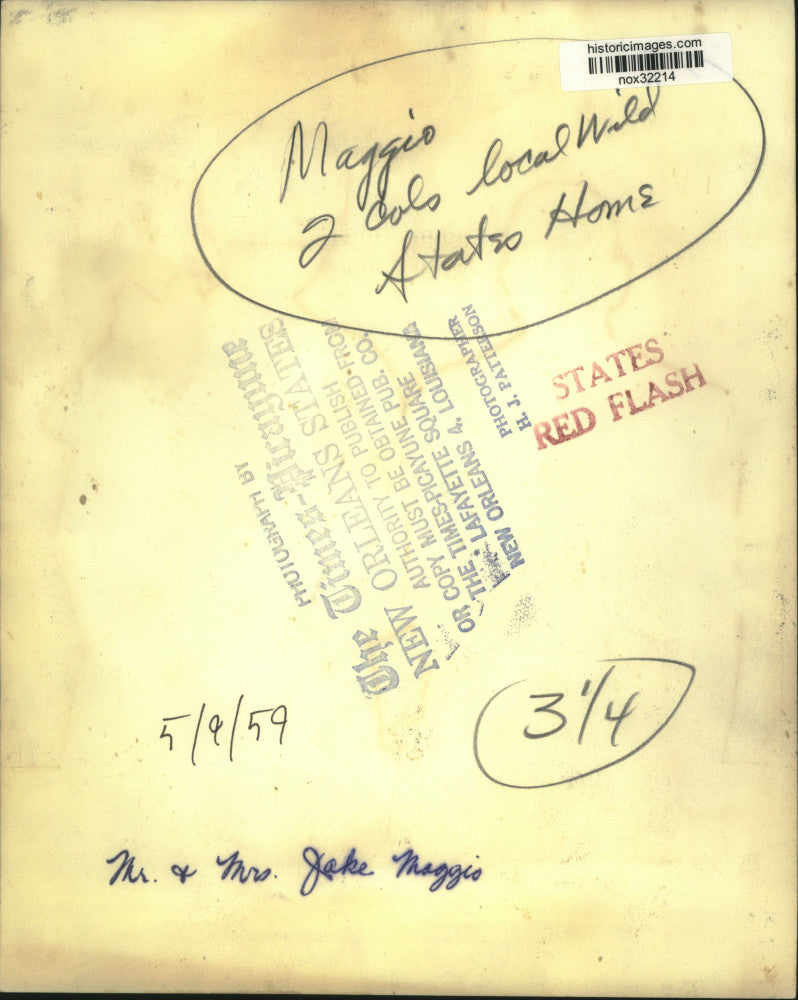 historicimages.com
nox32214
Maggio
2 Cols local Wild
States Home
PHOTOGRAPH BY
The Times-Picayune
NEW ORLEANS STATES
AUTHORITY TO PUBLISH
OR COPY MUST BE OBTAINED FROM
THE TIMES-PICAYUNE PUB. CO.
LAFAYETTE SQUARE
NEW ORLEANS 4, LOUISIANA
PHOTOGRAPHER
H. J. PATTERSON
STATES
RED FLASH
5/9/59
3 1/4
Mr. & Mrs. Jake Maggio